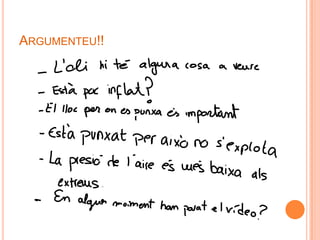 ARGUMENTEU!!
- L'oli hi té alguna cosa a veure
- Està poc inflat?
- El lloc per on es punxa és important
- Està punxat per això no s'explota
- La presió de l'aire és més baixa als
extreus
- En algun moment han parat el vídeo?